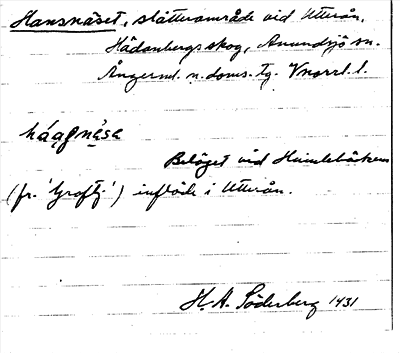 Hansnäset, slåtterområde vid Utterån,
Hädanbergs skog, Anundsjö sn.
Ångerml. n. doms. tg. Vnorrl. l.
Beläget vid
(fr. ) inflöde i Utterån.
H. A. Söderberg 1931